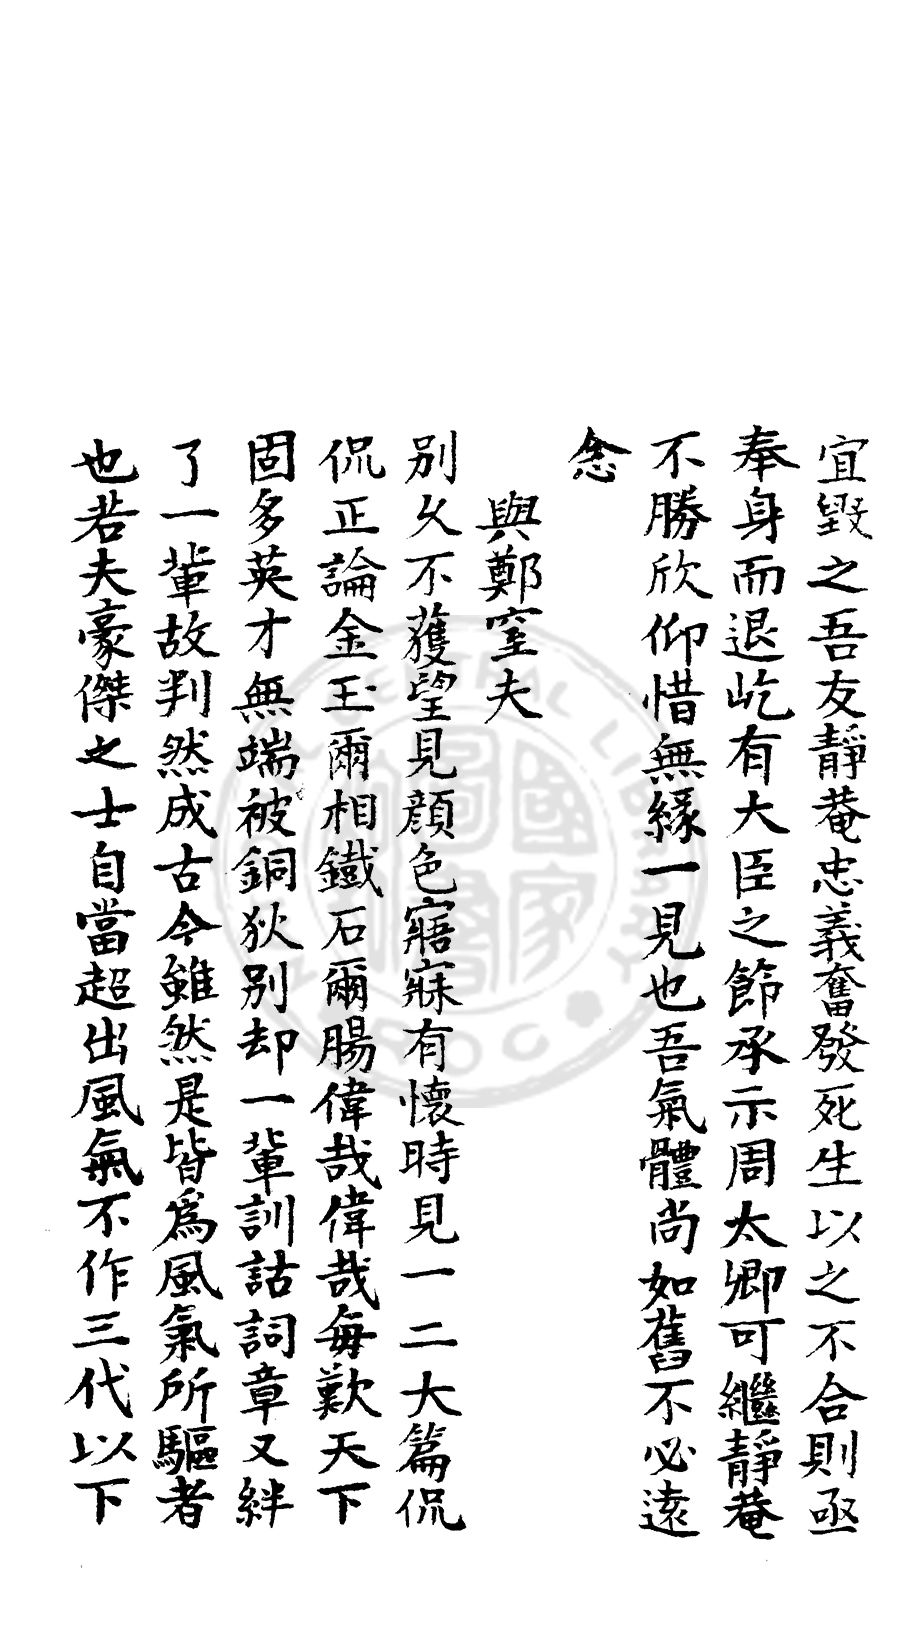 宜毀之吾友靜菴忠義奮發死生以之不合則亟
奉身而退屹有大臣之節承示周太卿可繼靜菴
不勝欣仰惜無緣一見也吾氣體尚如舊不必遠
念
與鄭窒夫
別久不獲望見顔色寤寐有懷時見一二大篇侃
侃正論金玉爾相鐵石爾腸偉哉偉哉每歎天下
固多英才無端被銅狄別却一輩訓詁詞章又絆
了一輩故判然成古今雖然是皆爲風氣所驅者
也若夫豪傑之士自當超出風氣不作三代以下
國家圖書
CENTRAL LIBRARY